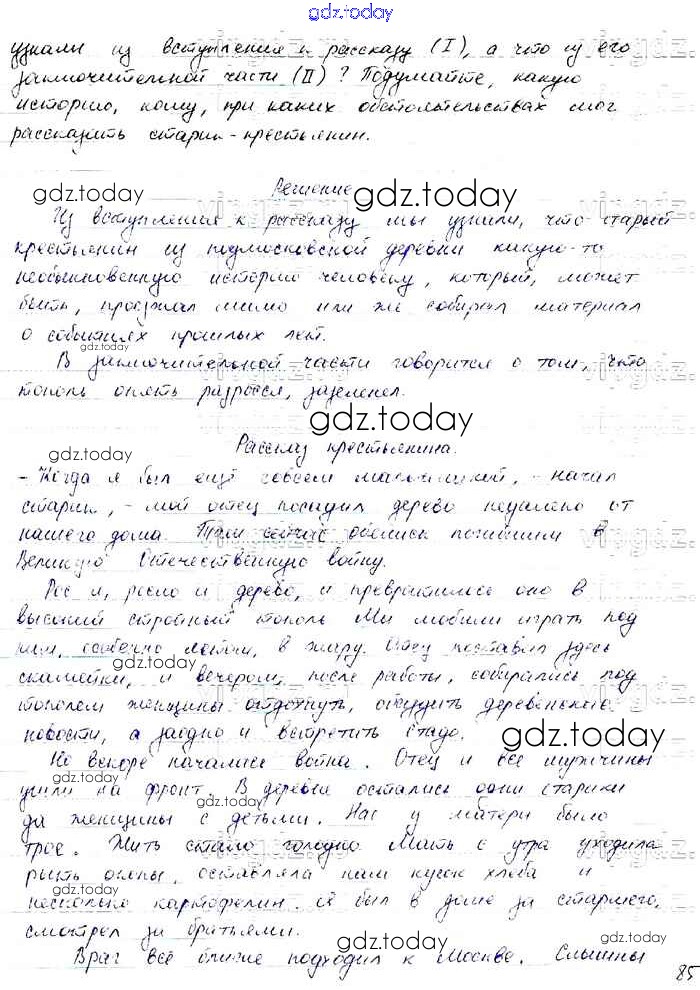 gdz.today
узнали из вступления к рассказу (I), а что из его
заключительной части (II)? Подумайте, какую
историю, кому, при каких обстоятельствах мог
рассказать старик-крестьянин.
Решение
Из вступления к рассказу мы узнали, что старый
крестьянин из подмосковской деревни какую-то
необыкновенную историю человеку, который, может
быть, проезжал мимо или же собирал материал
о событиях прошлых лет.
В заключительной части говорится о том, что
тополь опять разросся, зазеленел.
Рассказ крестьянина.
- Когда я был ещё совсем мальчишкой, - начал
старик, - мой отец посадил дерево недалеко от
нашего дома. Там сейчас обелиск погибшим в
Великую Отечественную войну.
Рос я, росло и дерево, и превратилось оно в
высокий стройный тополь Мы любили играть под
ним, особенно летом, в жару. Отец поставил здесь
скамейки, и вечером, после работы, собирались под
тополем женщины отдохнуть, обсудить деревенские
новости, а заодно и встретить стадо.
Но вскоре началась война. Отец и все мужчины
ушли на фронт. В деревне остались одни старики
да женщины с детьми. Нас у матери было
трое. Жить стало голодно Мать с утра уходила
рыть окопы, оставляла нам кусок хлеба и
несколько картофелин. Я был в доме за старшего,
смотрел за братьями.
Враг всё ближе подходил к Москве. Слышны
85